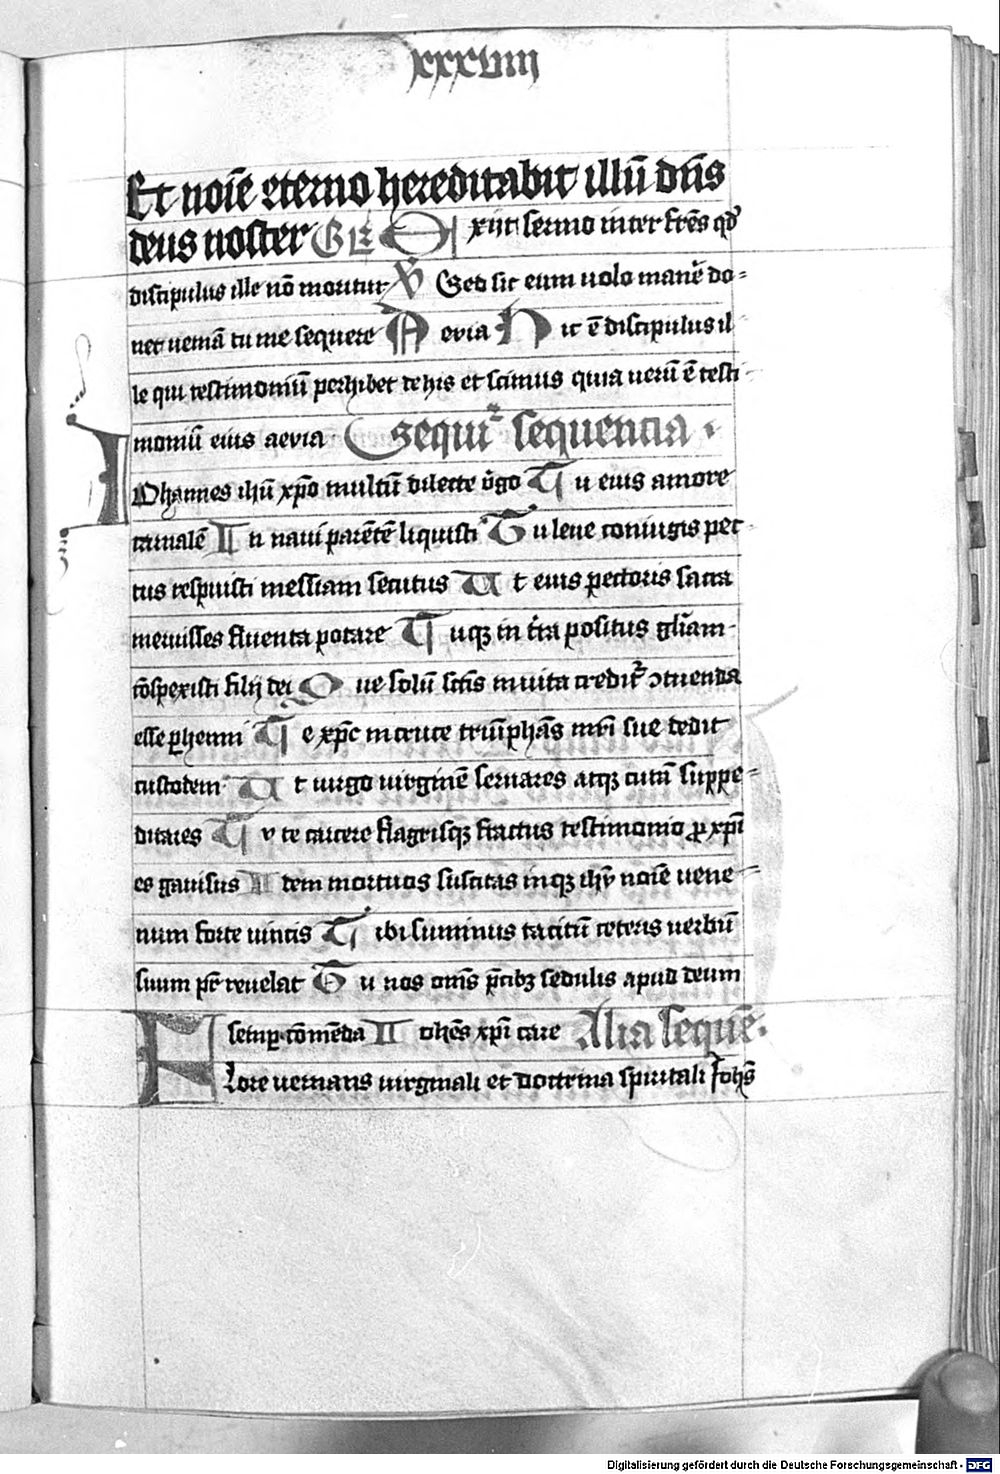 xxxviiij
Et noīe eterno hereditabit illū dn̄s
deus noster GLE Exijt sermo inter fr̄es qđ
discipulus ille nō moritur V̓ Sed sic eum uolo manē do-
nec ueniā tu me sequere Aevia Hic ē discipulus il-
le qui testimoniū perhibet de his et scimus quia uerū ē testi-
moniū eius aevia Sequit᷑ sequencia
IOhannes ihū xp̄o multū dilecte v̓go Tu eius amore
carnalē In naui parētē liquisti Tu leue coniugis pec-
tus respuisti messiam secutus Ut eius pectoris sacra
meruisses fluenta potare Tuqꝫ in t̄ra positus gl̄iam
cōspexisti filij dei Que solū sc̄is in uita credit᷑ ꝯtuenda
esse ꝑhenni Te xp̄c in cruce triūphās mr̄i sue dedit
custodem Ut uirgo uirginē seruares atqꝫ curā suppe-
ditares Tv te carcere flagrisqꝫ fractus testimonio ꝓ xp̄i
es gauisus Idem mortuos suscitas inqꝫ ihū noīe uene-
num forte uincis Tibi summus tacitū ceteris uerbū
suum pr̄ reuelat Tu nos om̄s p̄cibꝫ sedulis apud deum
semꝑ cōmēda Iohēs xp̄i care Alia sequē.
Flore uernans uirginali et doctrina spiritali Johēs
Digitalisierung gefördert durch die Deutsche Forschungsgemeinschaft - DFG